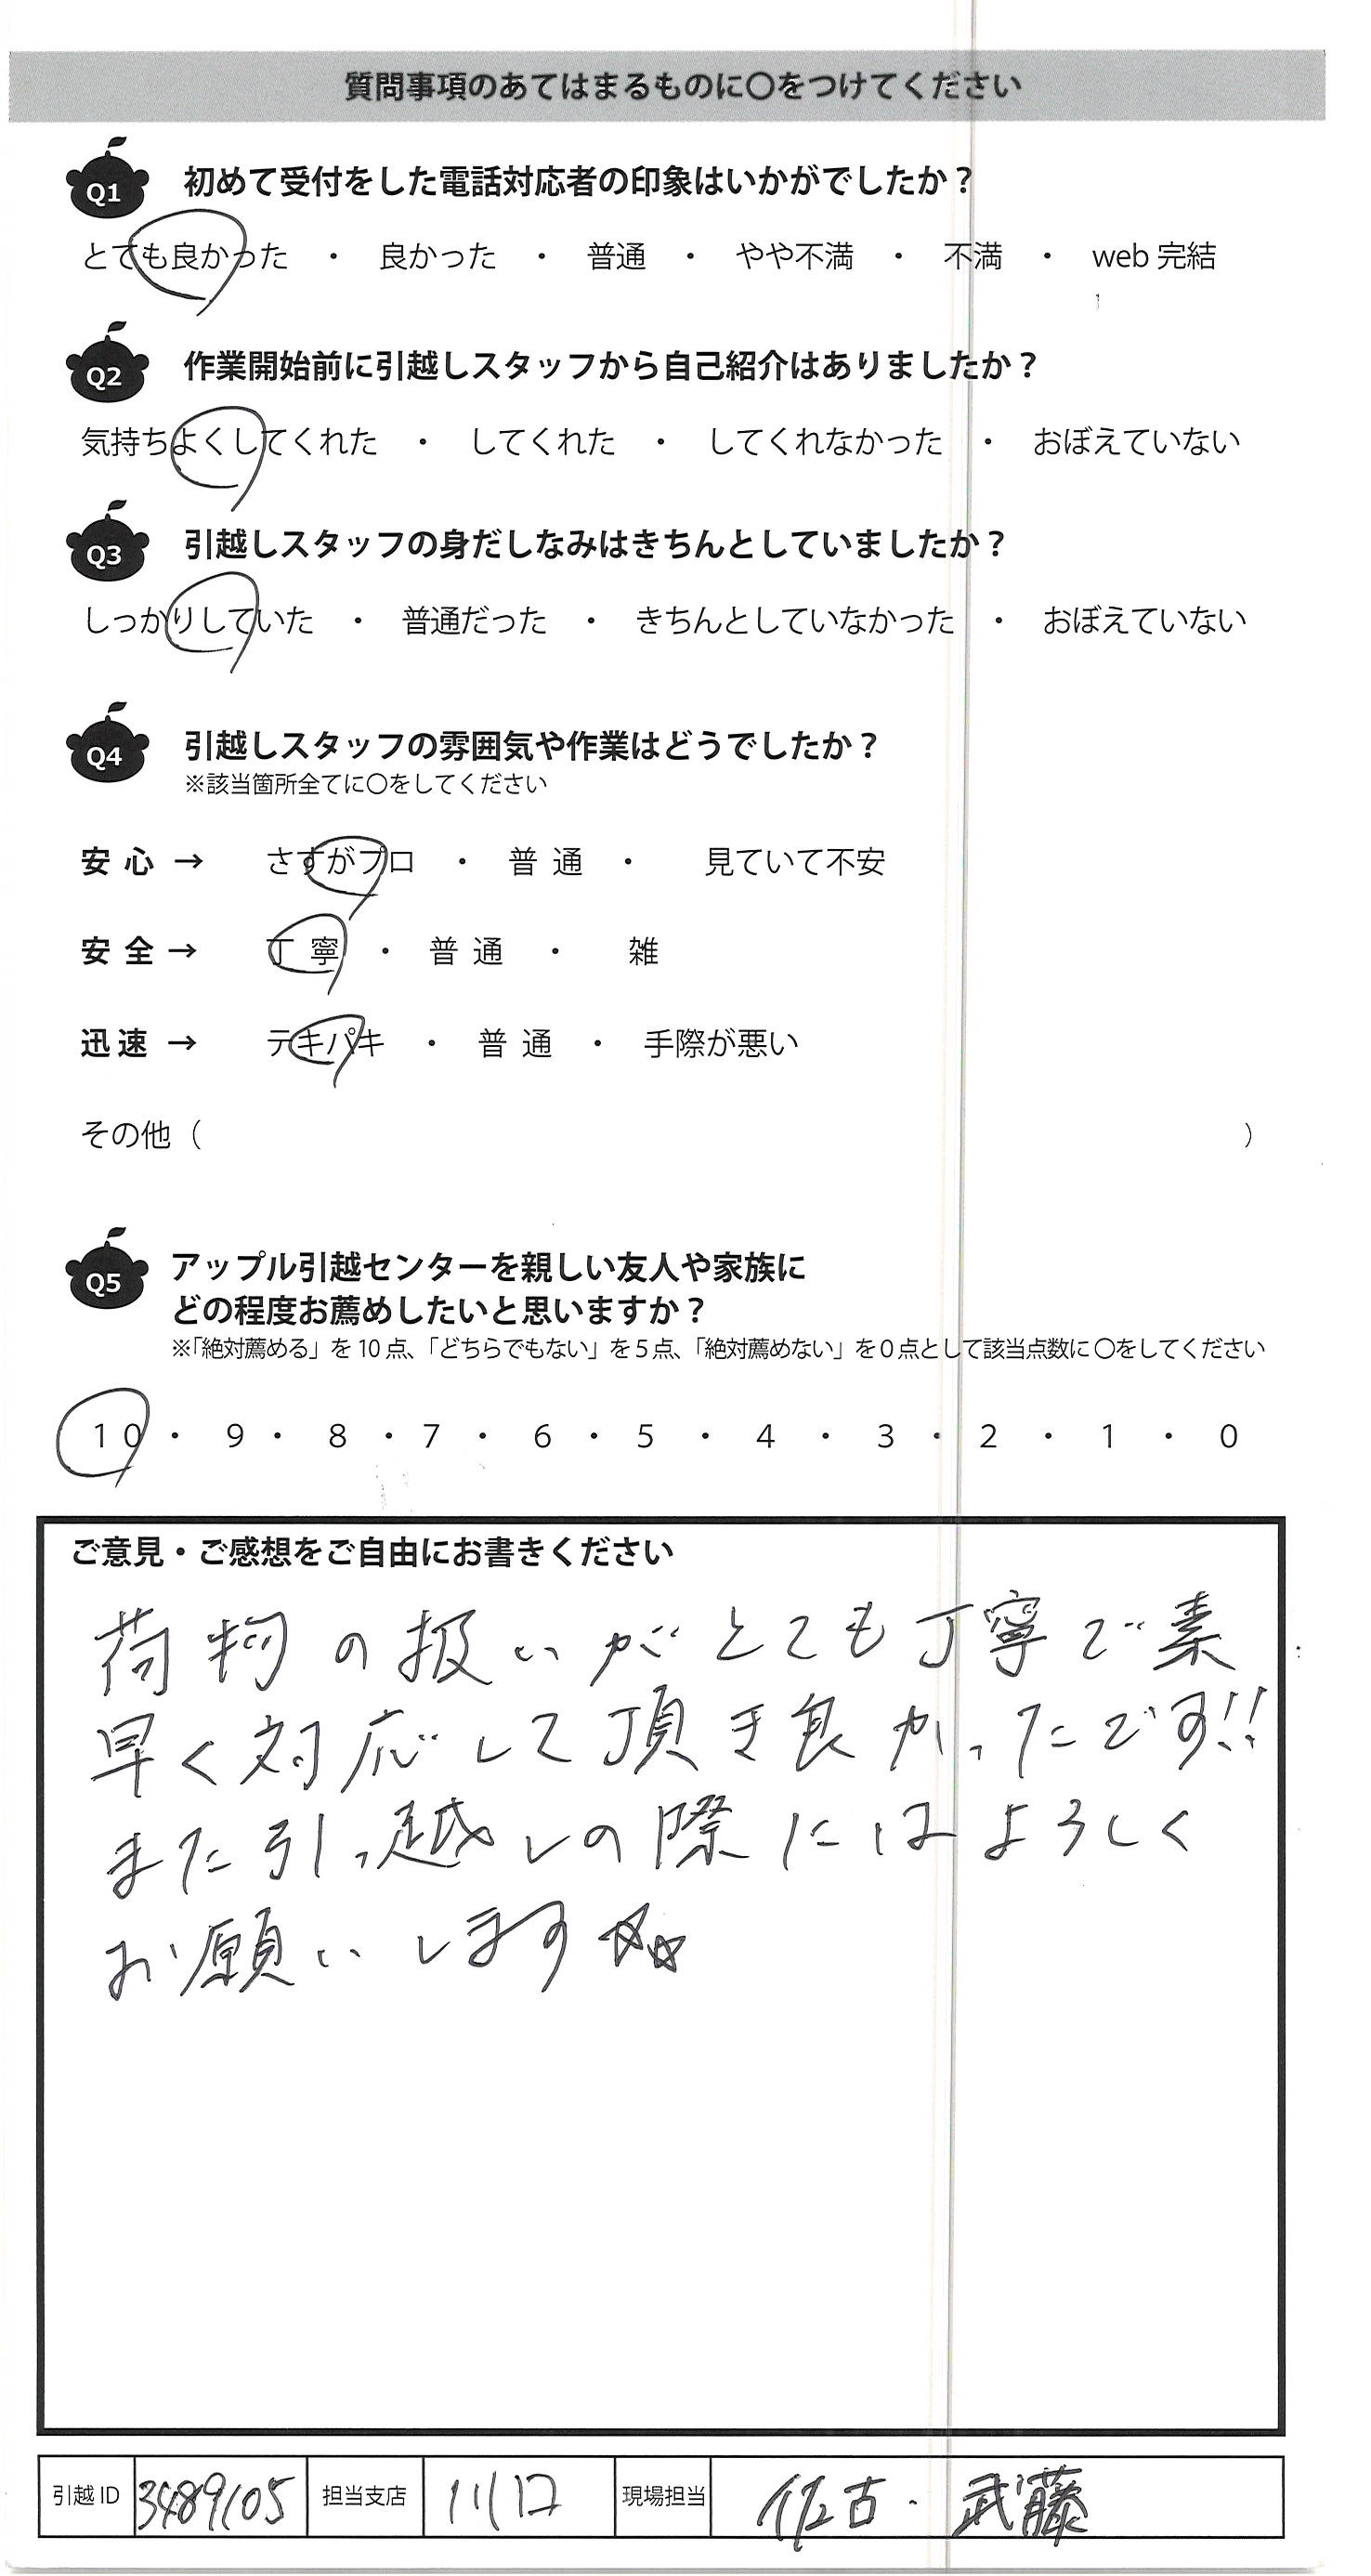 質問事項のあてはまるものに〇をつけてください
Q1 初めて受付をした電話対応者の印象はいかがでしたか？
とても良かった ・ 良かった ・ 普通 ・ やや不満 ・ 不満 ・ web 完結
Q2 作業開始前に引越しスタッフから自己紹介はありましたか？
気持ちよくしてくれた ・ してくれた ・ してくれなかった ・ おぼえていない
Q3 引越しスタッフの身だしなみはきちんとしていましたか？
しっかりしていた ・ 普通だった ・ きちんとしていなかった ・ おぼえていない
Q4 引越しスタッフの雰囲気や作業はどうでしたか？
※該当箇所全てに〇をしてください
安心 → さすがプロ ・ 普通 ・ 見ていて不安
安全 → 丁寧 ・ 普通 ・ 雑
迅速 → テキパキ ・ 普通 ・ 手際が悪い
その他（ ）
Q5 アップル引越センターを親しい友人や家族に
どの程度お薦めしたいと思いますか？
※「絶対薦める」を 10 点、「どちらでもない」を 5 点、「絶対薦めない」を 0 点として該当点数に〇をしてください
10 ・ 9 ・ 8 ・ 7 ・ 6 ・ 5 ・ 4 ・ 3 ・ 2 ・ 1 ・ 0
ご意見・ご感想をご自由にお書きください
荷物の扱いがとても丁寧で素
早く対応して頂き良かったです!!
また引っ越しの際にはよろしく
お願いします☆☆
引越 ID 3489105 担当支店 川口 現場担当 佐古・武藤